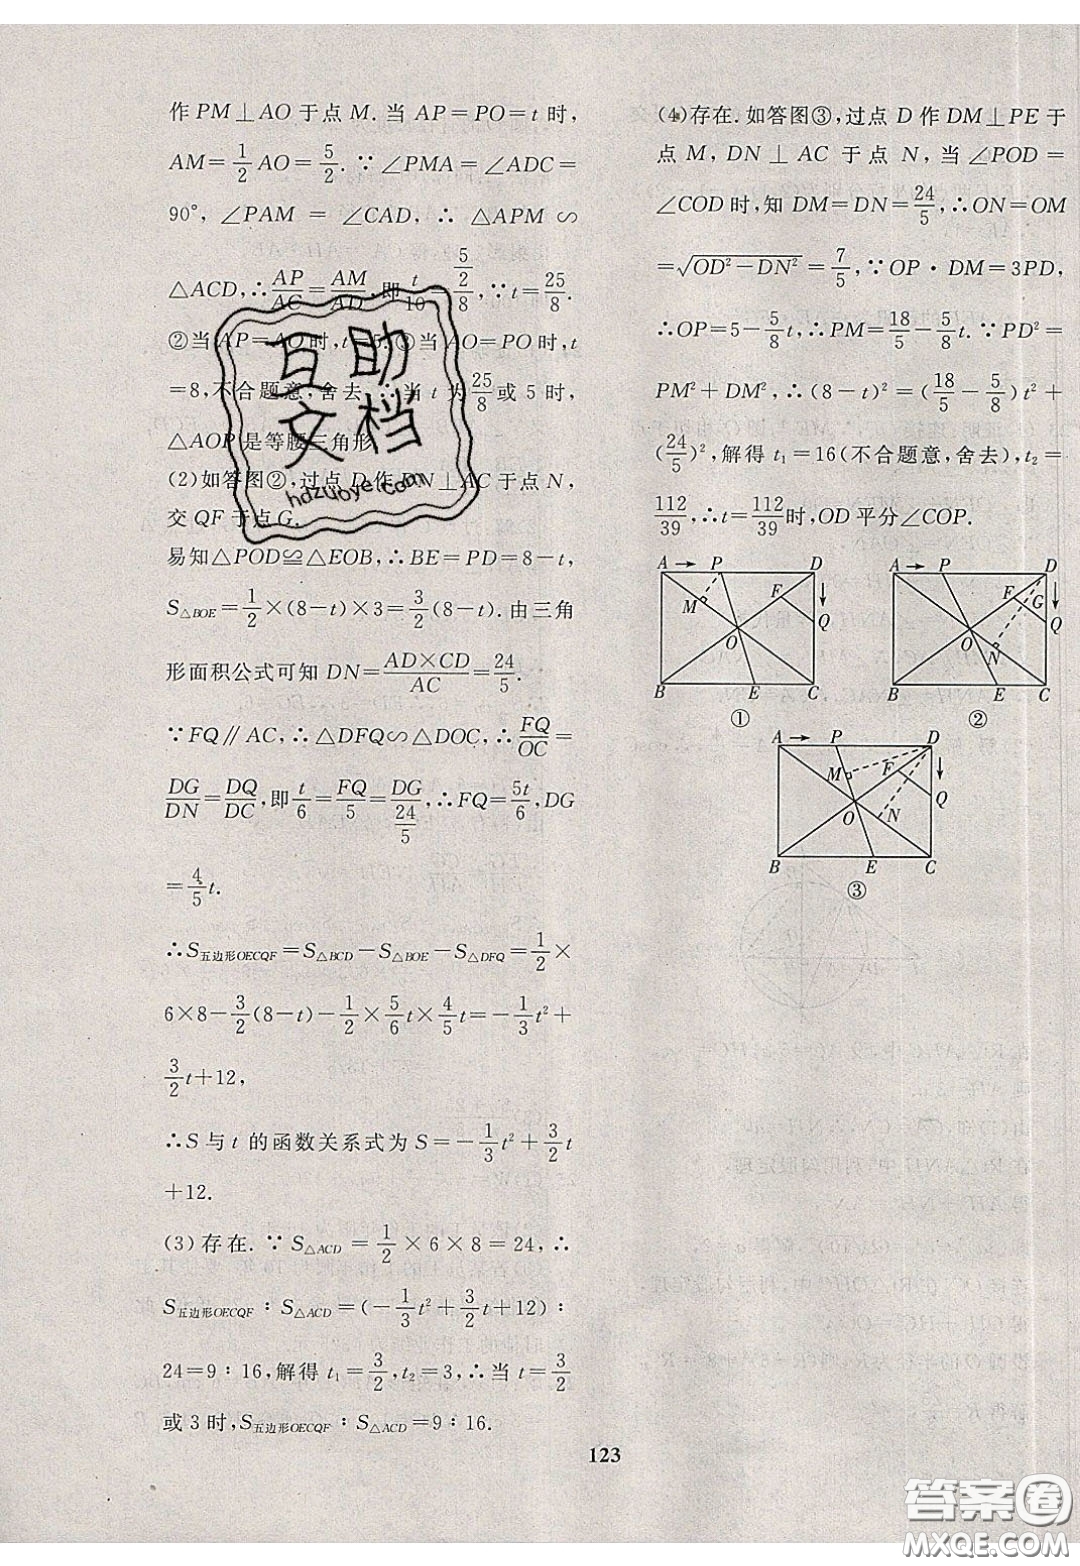 作 PM⊥AO 于点 M. 当 AP=PO=t 时,
AM=1/2 AO=5/2. ∵∠PMA=∠ADC=
90°, ∠PAM=∠CAD, ∴△APM∽
△ACD, ∴AP/AC=AM/AD, 即 t/10=(5/2)/8, ∵t=25/8.
②当 AP=AO 时, t=5. ③当 AO=PO 时, t
=8, 不合题意, 舍去. ∴当 t 为 25/8 或 5 时,
△AOP 是等腰三角形.
(2)如答图②, 过点 D 作 DN⊥AC 于点 N,
交 QF 于点 G.
易知△POD≌△EOB, ∴BE=PD=8-t,
S△BOE=1/2×(8-t)×3=3/2(8-t). 由三角
形面积公式可知 DN=AD×CD/AC=24/5.
∵FQ∥AC, ∴△DFQ∽△DOC, ∴FQ/OC=
DG/DN=DQ/DC, 即 t/6=FQ/5=DG/(24/5), ∴FQ=5t/6, DG
=4/5 t.
∴S五边形OECQF=S△BCD-S△BOE-S△DFQ=1/2×
6×8-3/2(8-t)-1/2×5/6 t×4/5 t=-1/3 t²+
3/2 t+12,
∴S 与 t 的函数关系式为 S=-1/3 t²+3/2 t
+12.
(3)存在. ∵S△ACD=1/2×6×8=24, ∴
S五边形OECQF∶S△ACD=(-1/3 t²+3/2 t+12)∶
24=9∶16, 解得 t₁=3/2, t₂=3, ∴当 t=3/2
或 3 时, S五边形OECQF∶S△ACD=9∶16.
(4)存在. 如答图③, 过点 D 作 DM⊥PE 于
点 M, DN⊥AC 于点 N, 当∠POD=
∠COD 时, 知 DM=DN=24/5, ∴ON=OM
=√(OD²-DN²)=7/5, ∵OP·DM=3PD,
∴OP=5-5/8 t, ∴PM=18/5-5/8 t. ∵PD²=
PM²+DM², ∴(8-t)²=(18/5-5/8)t²+
(24/5)², 解得 t₁=16(不合题意, 舍去), t₂=
112/39, ∴t=112/39 时, OD 平分∠COP.
A P D M F Q O B E C
①
A P D F G Q O N B E C
②
A P D M F Q O N B E C
③
123
互助
文档
hdzuoye.com
答案卷
MXQE.COM